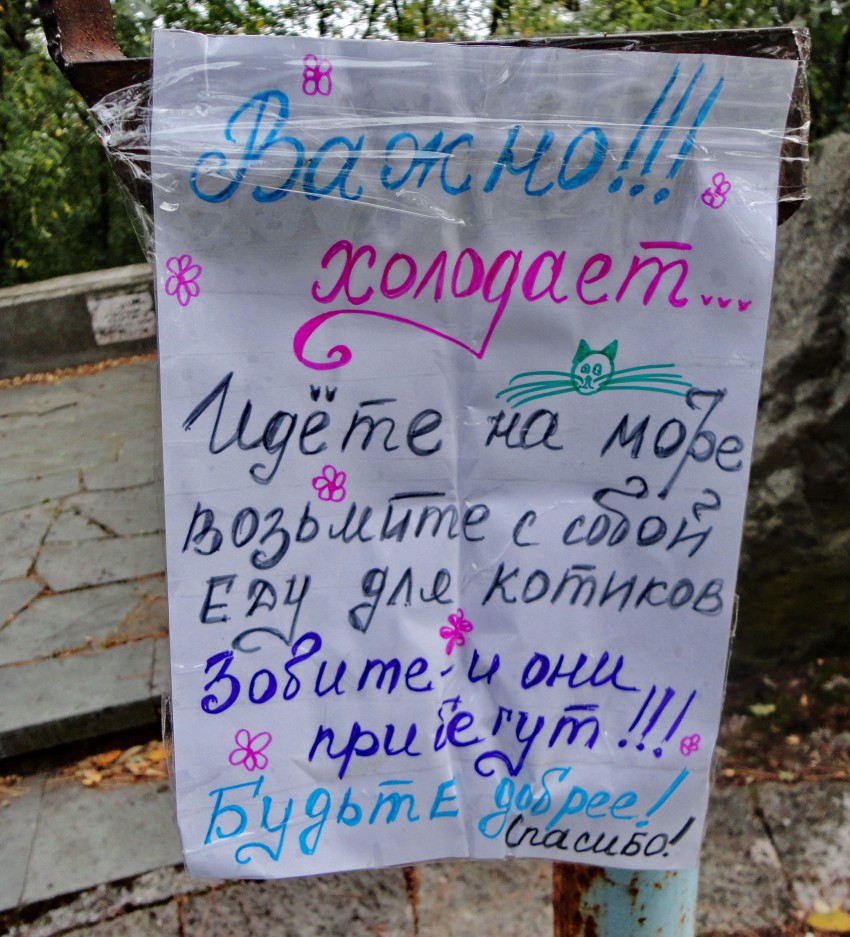 Важно!!!
холодает...
Идёте на море
возьмите с собой
ЕДУ для котиков
Зовите - и они
прибегут!!!
БудьтЕ добрее!
Спасибо!